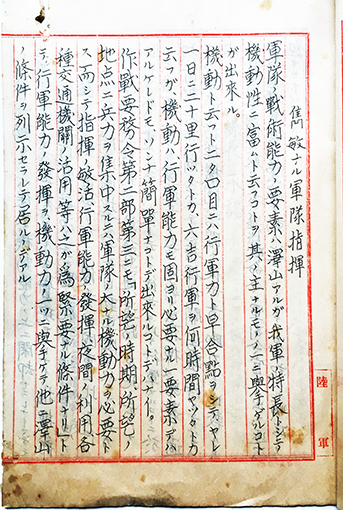 雋敏ナル軍隊指揮
軍隊ノ戰術能力ノ要素ハ澤山アルガ我軍ノ特長トシテ
機動性ニ富ムト云フコトヲ其ノ主ナルモノノ一ニ擧ゲルコト
が出來ル。
機動ト云フト二タ口目ニハ行軍力ト早合點ヲシテヤレ
一日ニ二十里行ツタトカ、六吉行軍ヲ何時間ヤツタトカ
云フガ、機動ハ行軍能力モ固ヨリ必要ナ一要素デハ
アルケレドモ、ソンナ簡單ナコトデ出來ルコトデハナイ。
作戰要務令第二部第三ニモ「所望ノ時期、所望ノ
地点ニ兵力ヲ集中スルニハ軍隊ノ大ナル機動力ヲ必要ト
ス而シテ指揮敏活行軍能力ノ發揮、夜間ノ利用各
種交通機關ノ活用等ハ之ガ為緊要ナル條件ナリ」ト
テ行軍能力ノ發揮ヲ機動力ノ一ツニ擧ゲテ他ニ澤山
ノ條件ヲ列示セラレテ居ルノデアル
陸軍